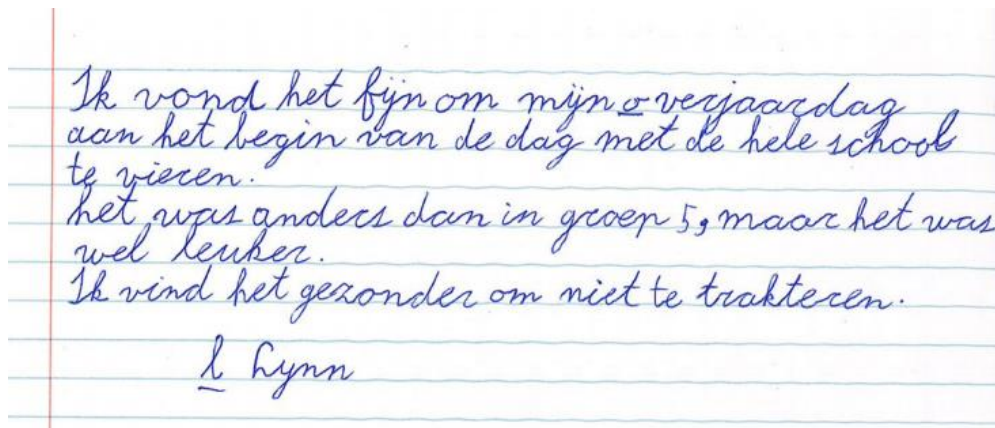 Ik vond het fijn om mijn o verjaardag
aan het begin van de dag met de hele school
te vieren.
het was anders dan in groep 5, maar het was
wel leuker.
Ik vind het gezonder om niet te trakteren.
l Lynn